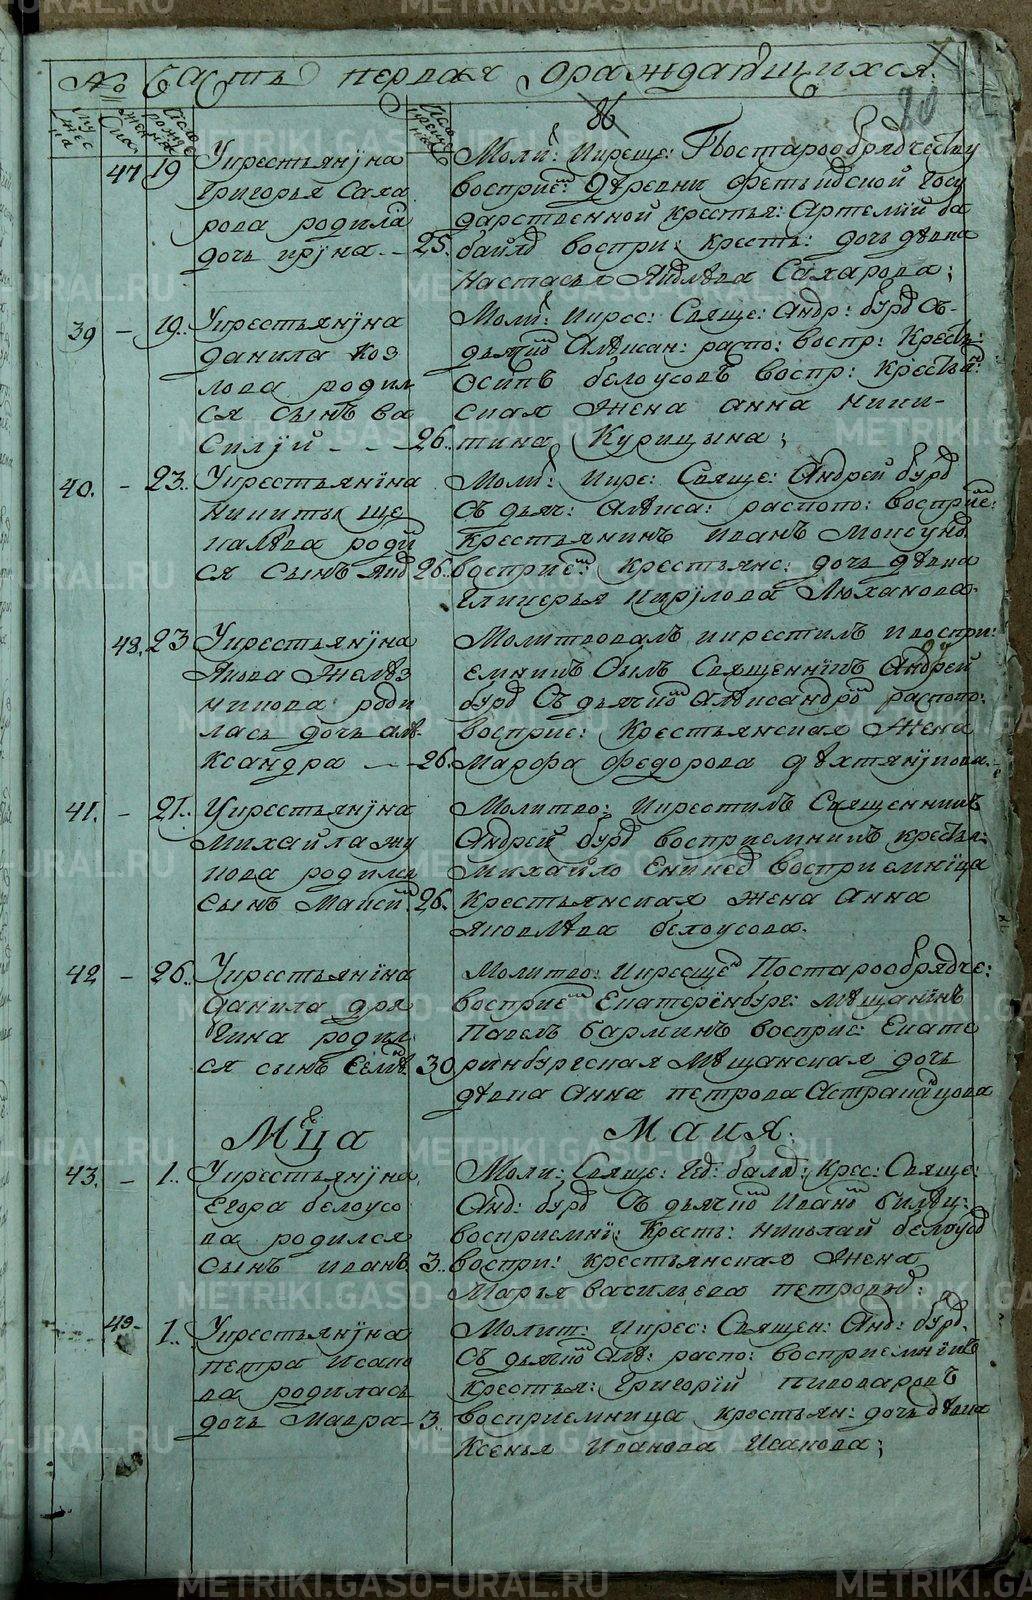 № Часть первая ораждающихся.
86
80
47 19 Укрестьянина
Григорья Саха
рова родила
дочь ирина - 25.
Моли: икреще: Постарообрядчеству
восприе: деревни
дарственной крестья: Артемий ба
воспри: кресть: дочь девка
Настасья Сахарова;
39 - 19. Укрестьянина
данила коз
лова родил
ся сынъ ва
силий - - 26.
Моли: икрес: Свяще: Андр: бурд съ
дьяч Алексан: распо: воспр: кресть:
осипъ белоусовъ воспр: кресть
ская жена анна ники-
тина Курицына;
40. - 23. Укрестьянина
Никиты ще
калева роди
ся сынъ 26.
Моли: икре: Свяще: Андрей бурд
съ дьяч: Алекса: распопо: восприе:
крестьянинъ иванъ
восприе: крестьянс: дочь девка
гликерья кирилова Люханова.
48. 23 Укрестьянина
Якова Желез
никова роди
лась дочь але
ксандра - - 26.
Молитвовалъ икрестилъ ивоспри:
емникъ былъ Священникъ Андрей
бурд съ дьяч Александро распопо:
восприе: крестьянская жена
Марфа федорова дехтяникова.
41. - 21. Укрестьянина
михайла жу
кова родил
сынъ 26.
Молитво: икрестилъ Священникъ
Андрей бурд восприемникъ крестья:
михайло восприемница
крестьянская жена Анна
яковлева белоусова.
42 - 26. Укрестьянина
данила дря
гина родил
ся сынъ 30
Молитво: икреще Постарообрядче:
восприе Екатеринбург: мещанинъ
Павелъ барминъ восприе: Екате
ринбургская мещанская дочь
девка Анна петрова
Мца Маия.
43. - 1. Укрестьянина
Егора белоусо
ва родился
сынъ иванъ 3.
Моли: Свяще: крес: Свяще:
Анд: бурд съ дьяч Ивано
восприемни: кресть: николай белоусо
воспри: крестьянская жена
Марья васильева петров
49 - 1. Укрестьянина
петра исако
ва родилась
дочь Мавра - 3.
Молит: икрес: Священ: Анд: бурд.
съ дьяч Але: распо: восприемникъ
крестья: Григорий пивоваровъ
восприемница крестьян: дочь девка
Ксенья Иванова Исакова;
METRIKI.GASO-URAL.RU